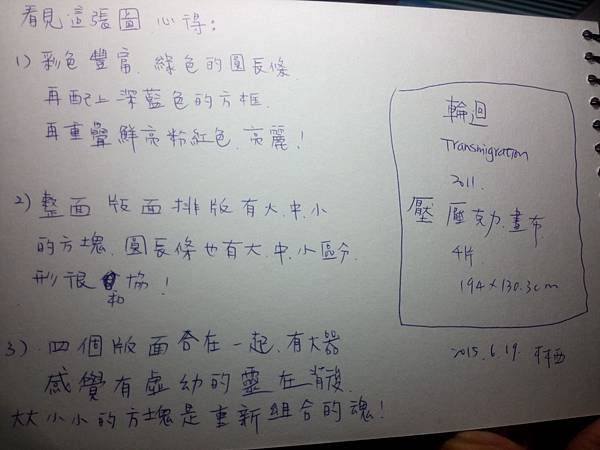 看見這張圖 心得:
1) 彩色豐富. 綠色的圓長條
再配上深藍色的方框.
再重疊鮮亮粉紅色. 亮麗!
2) 整面版面排版有大.中.小
的方塊. 圓長條也有大.中.小區分.
形很 協!
和
3) 四個版面合在一起. 有大器
感覺有虛幼的靈在背後.
大大小小的方塊是重新組合的魂!
輪迴
Transmigration
2011.
壓 壓克力.畫布.
4片.
194×130.3cm
2015.6.19.